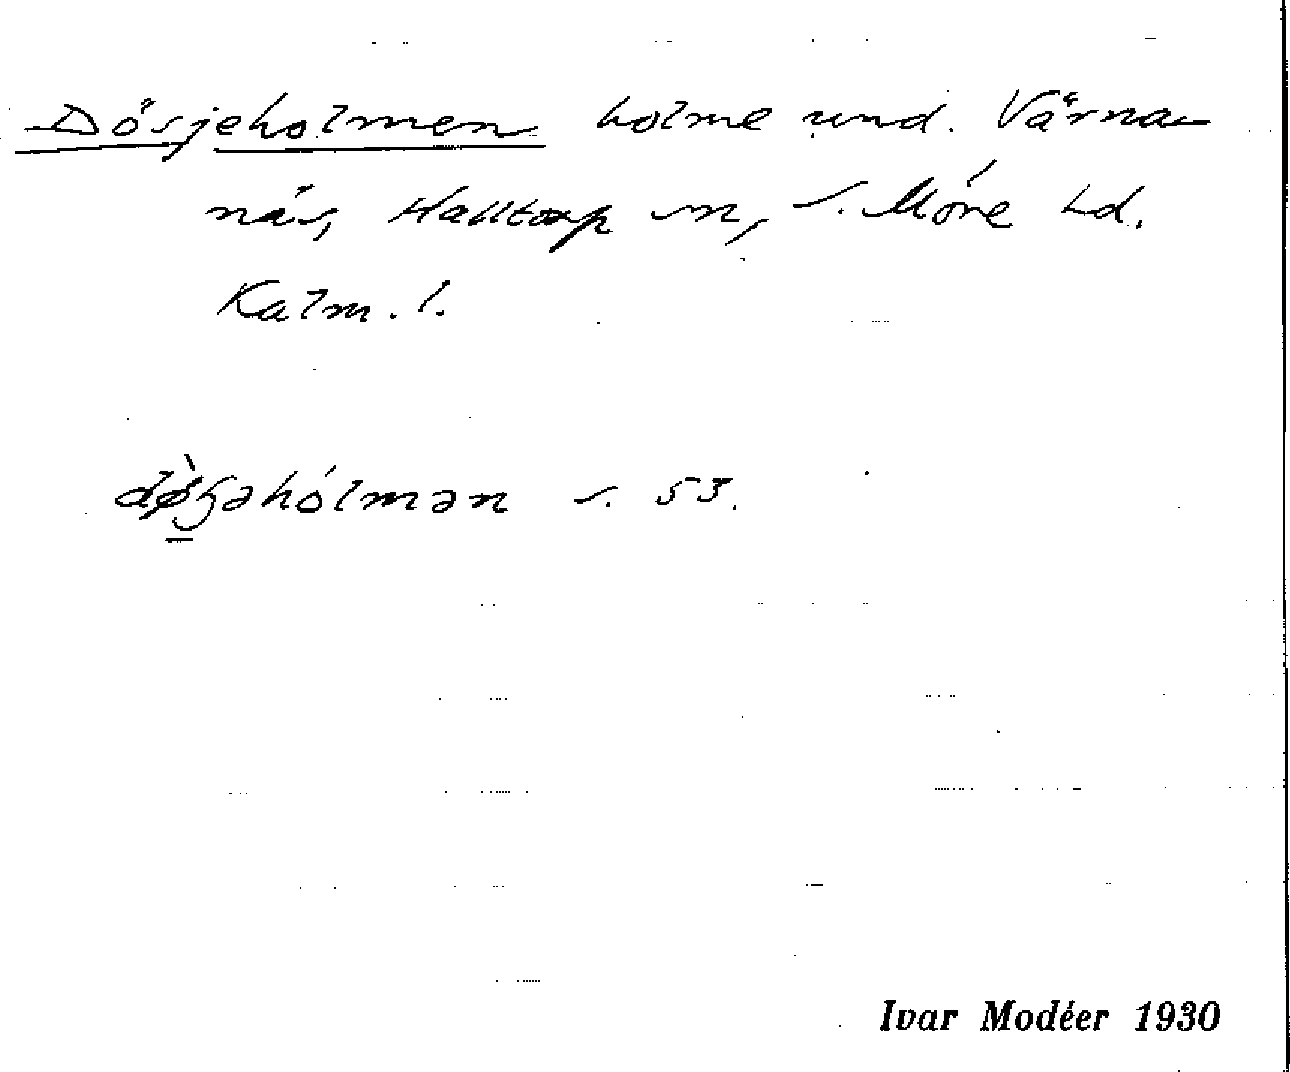 Dösjeholmen holme und. Värna-
näs, Halltorp sn, S. Möre hd.
Kalm. l.
s. 53.
Ivar Modéer 1930